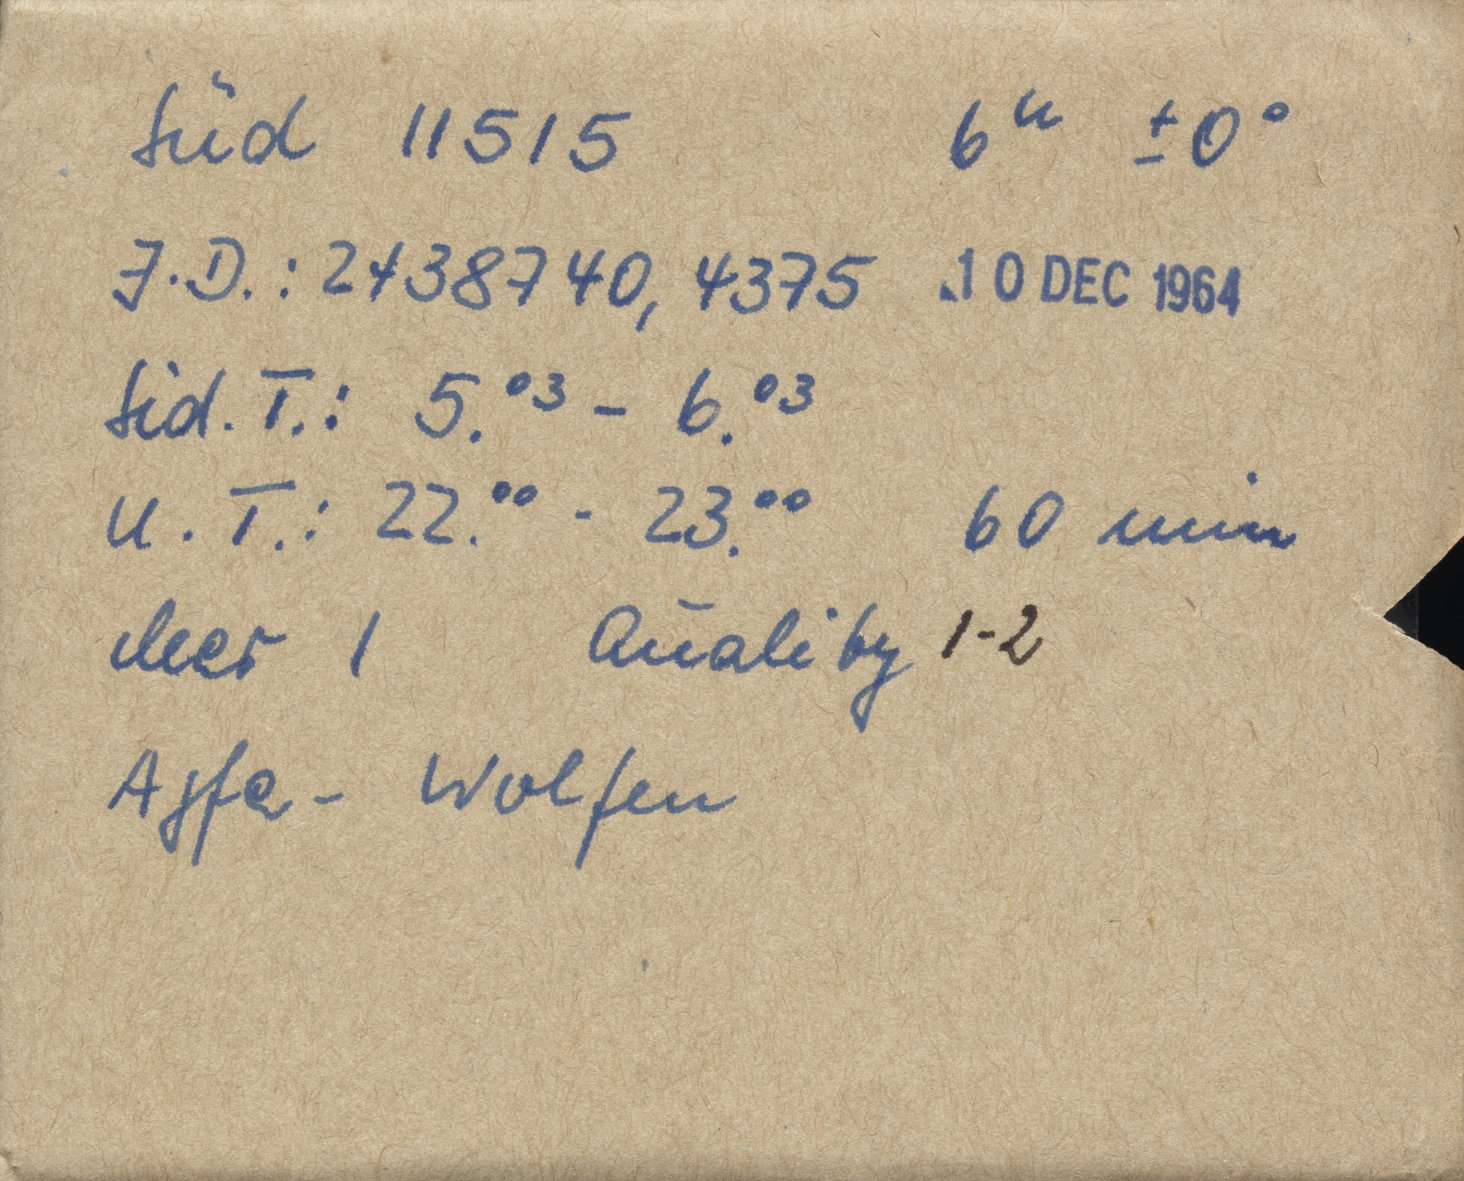 Süd 11515 6ʰ ±0°
J.D.: 2438740,4375 10 DEC 1964
Sid. T.: 5.⁰³ - 6.⁰³
U. T.: 22.⁰⁰ - 23.⁰⁰ 60 min
clear 1 Quality 1-2
Agfa - Wolfen